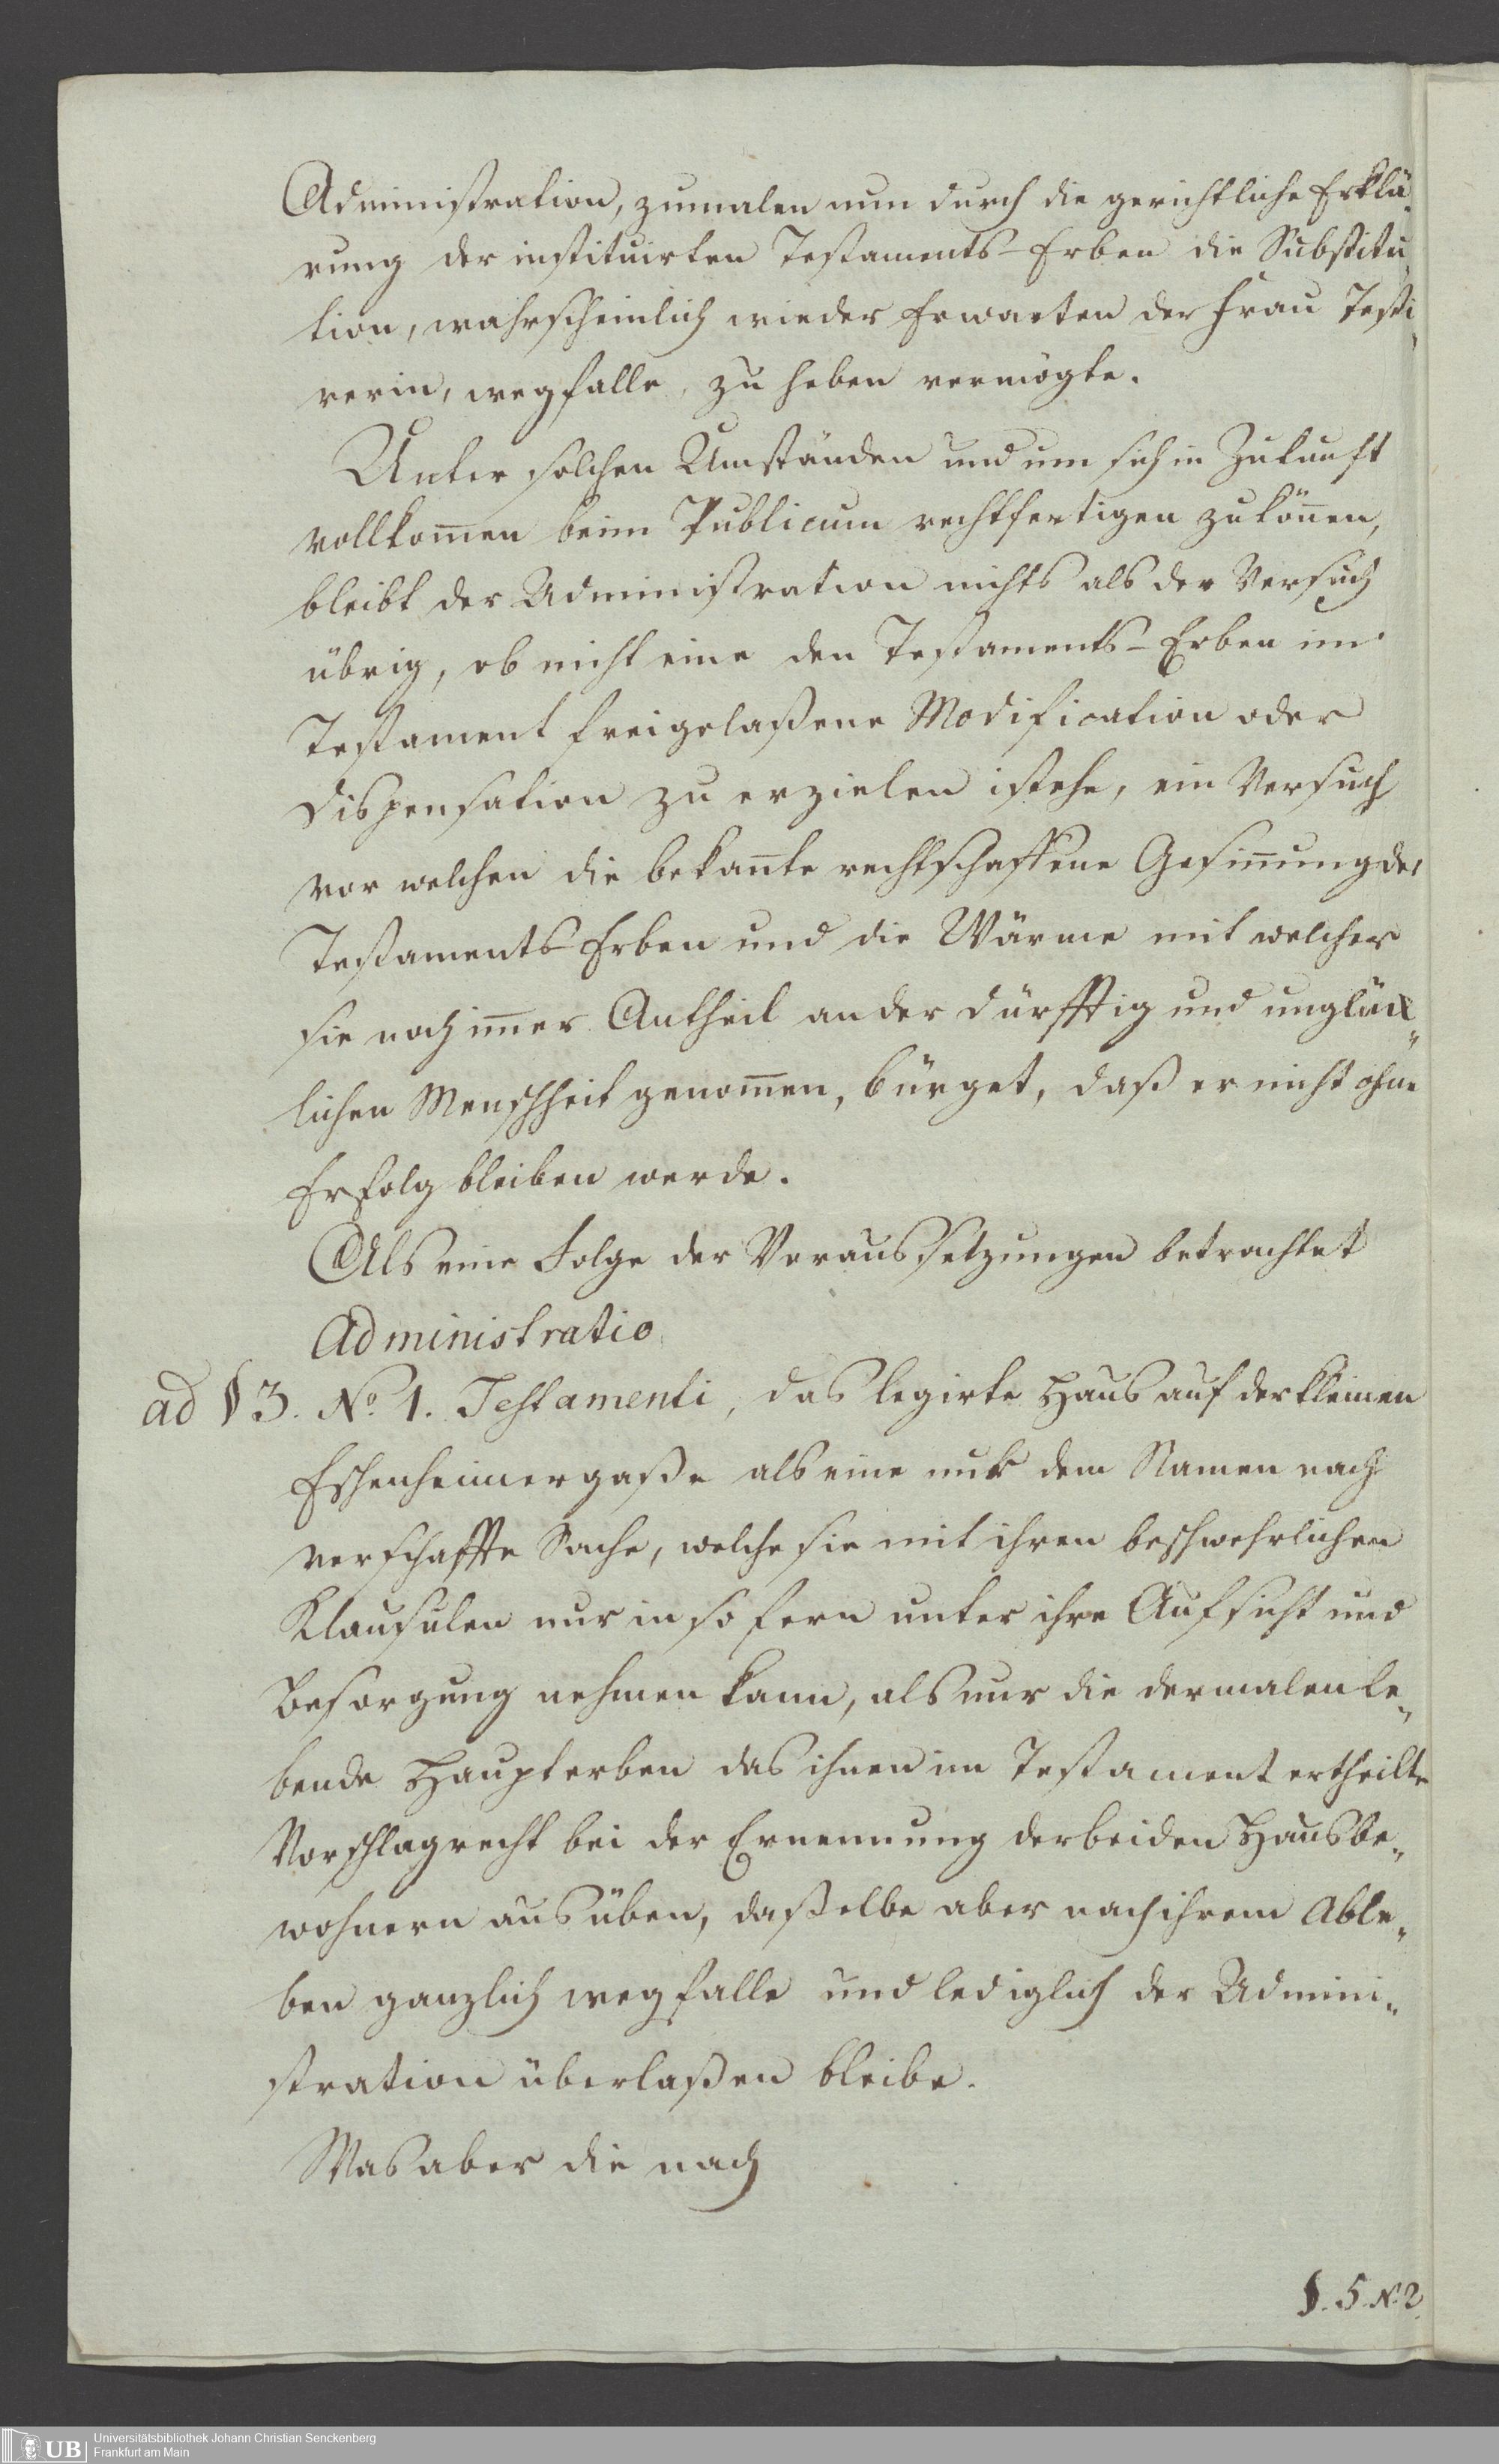 Administration, zumalen nun durch die gerichtliche Erklä„
rung der instituirten Testaments-Erben die Substitu„
tion, wahrscheinlich wieder Erwarten der Frau Testi„
rerin, wegfalle, zu heben vermögte.
Unter solchen Umständen und um sich in Zukunft
vollkom̄en beim Publicum rechtfertigen zu kön̄en,
bleibt der Administration nichts als der Versuch
übrig, ob nicht eine den Testaments-Erben im
Testament freigelaßene Modification oder
Dispensation zu erzielen stehe, ein Versuch
vor welchen die bekan̄te rechtschaffene Gesin̄ung der
Testaments-Erben und die Wärme mit welcher
sie noch im̄er Antheil an der dürfftig und unglük„
lichen Menschheit genom̄en, bürget, daß er nicht ohne
Erfolg bleiben werde.
Als eine Folge der Voraussetzungen betrachtet
Administratio
ad § 3. No. 1. Testamenti, das legirte Haus auf der kleinen
Eschenheimergaße als eine nur dem Namen nach
verschaffte Sache, welche sie mit ihren beschwehrlichen
Klausulen nur in so fern unter ihre Aufsicht und
Besorgung nehmen kann, als nur die dermalen le„
bende Haupterben das ihnen im Testament ertheilte
Vorschlagrecht bei der Ernennung der beiden Hausbe„
wohnern ausüben, daßelbe aber nach ihrem Able„
ben ganzlich wegfalle und lediglich der Admini„
stration überlaßen bleibe.
Was aber die nach
§. 5. N. 2.
UB
Universitätsbibliothek Johann Christian Senckenberg
Frankfurt am Main